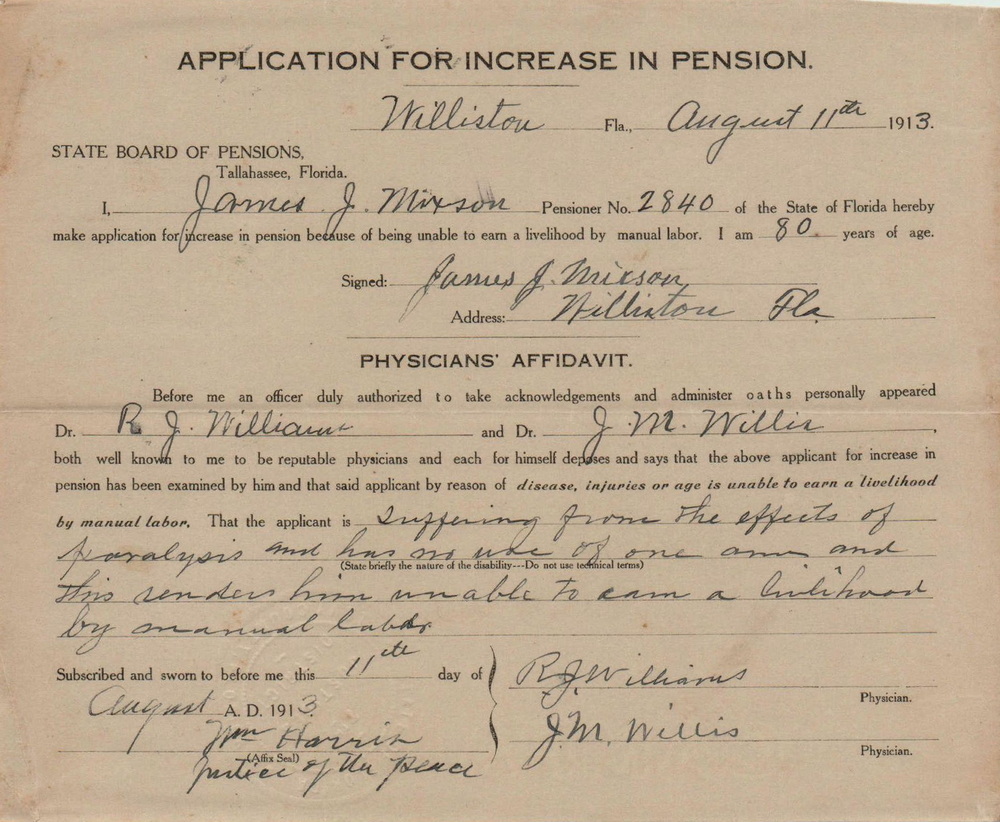 APPLICATION FOR INCREASE IN PENSION.
Williston Fla., August 11th 1913.
STATE BOARD OF PENSIONS,
Tallahassee, Florida.
I, James J. Mixson Pensioner No. 2840 of the State of Florida hereby
make application for increase in pension because of being unable to earn a livelihood by manual labor. I am 80 years of age.
Signed: James J. Mixson
Address: Williston Fla
PHYSICIANS' AFFIDAVIT.
Before me an officer duly authorized to take acknowledgements and administer oaths personally appeared
Dr. R J. Williams and Dr. J. M. Willis,
both well known to me to be reputable physicians and each for himself deposes and says that the above applicant for increase in
pension has been examined by him and that said applicant by reason of disease, injuries or age is unable to earn a livelihood
by manual labor. That the applicant is suffering from the effects of
paralysis and has no use of one arm and
(State briefly the nature of the disability---Do not use technical terms)
this renders him unable to earn a livlihood
by manual labor
Subscribed and sworn to before me this 11th day of
August A. D. 1913.
Wm Harris
(Affix Seal)
Justice of the Peace
R. J. Williams
Physician.
J. M. Willis
Physician.